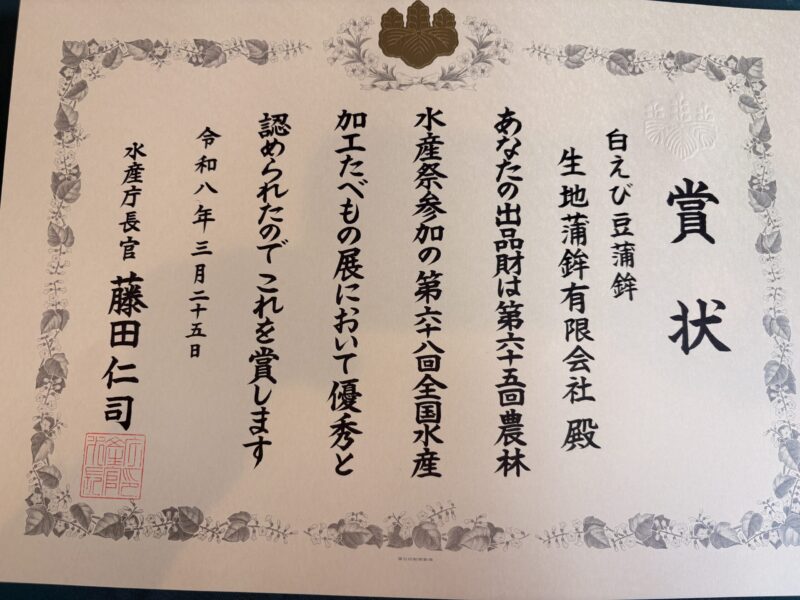 賞状
白えび豆蒲鉾
生地蒲鉾有限会社 殿
あなたの出品財は第六十五回農林
水産祭参加の第六十八回全国水産
加工たべもの展において優秀と
認められたので これを賞します
令和八年三月二十五日
水産庁長官 藤田仁司